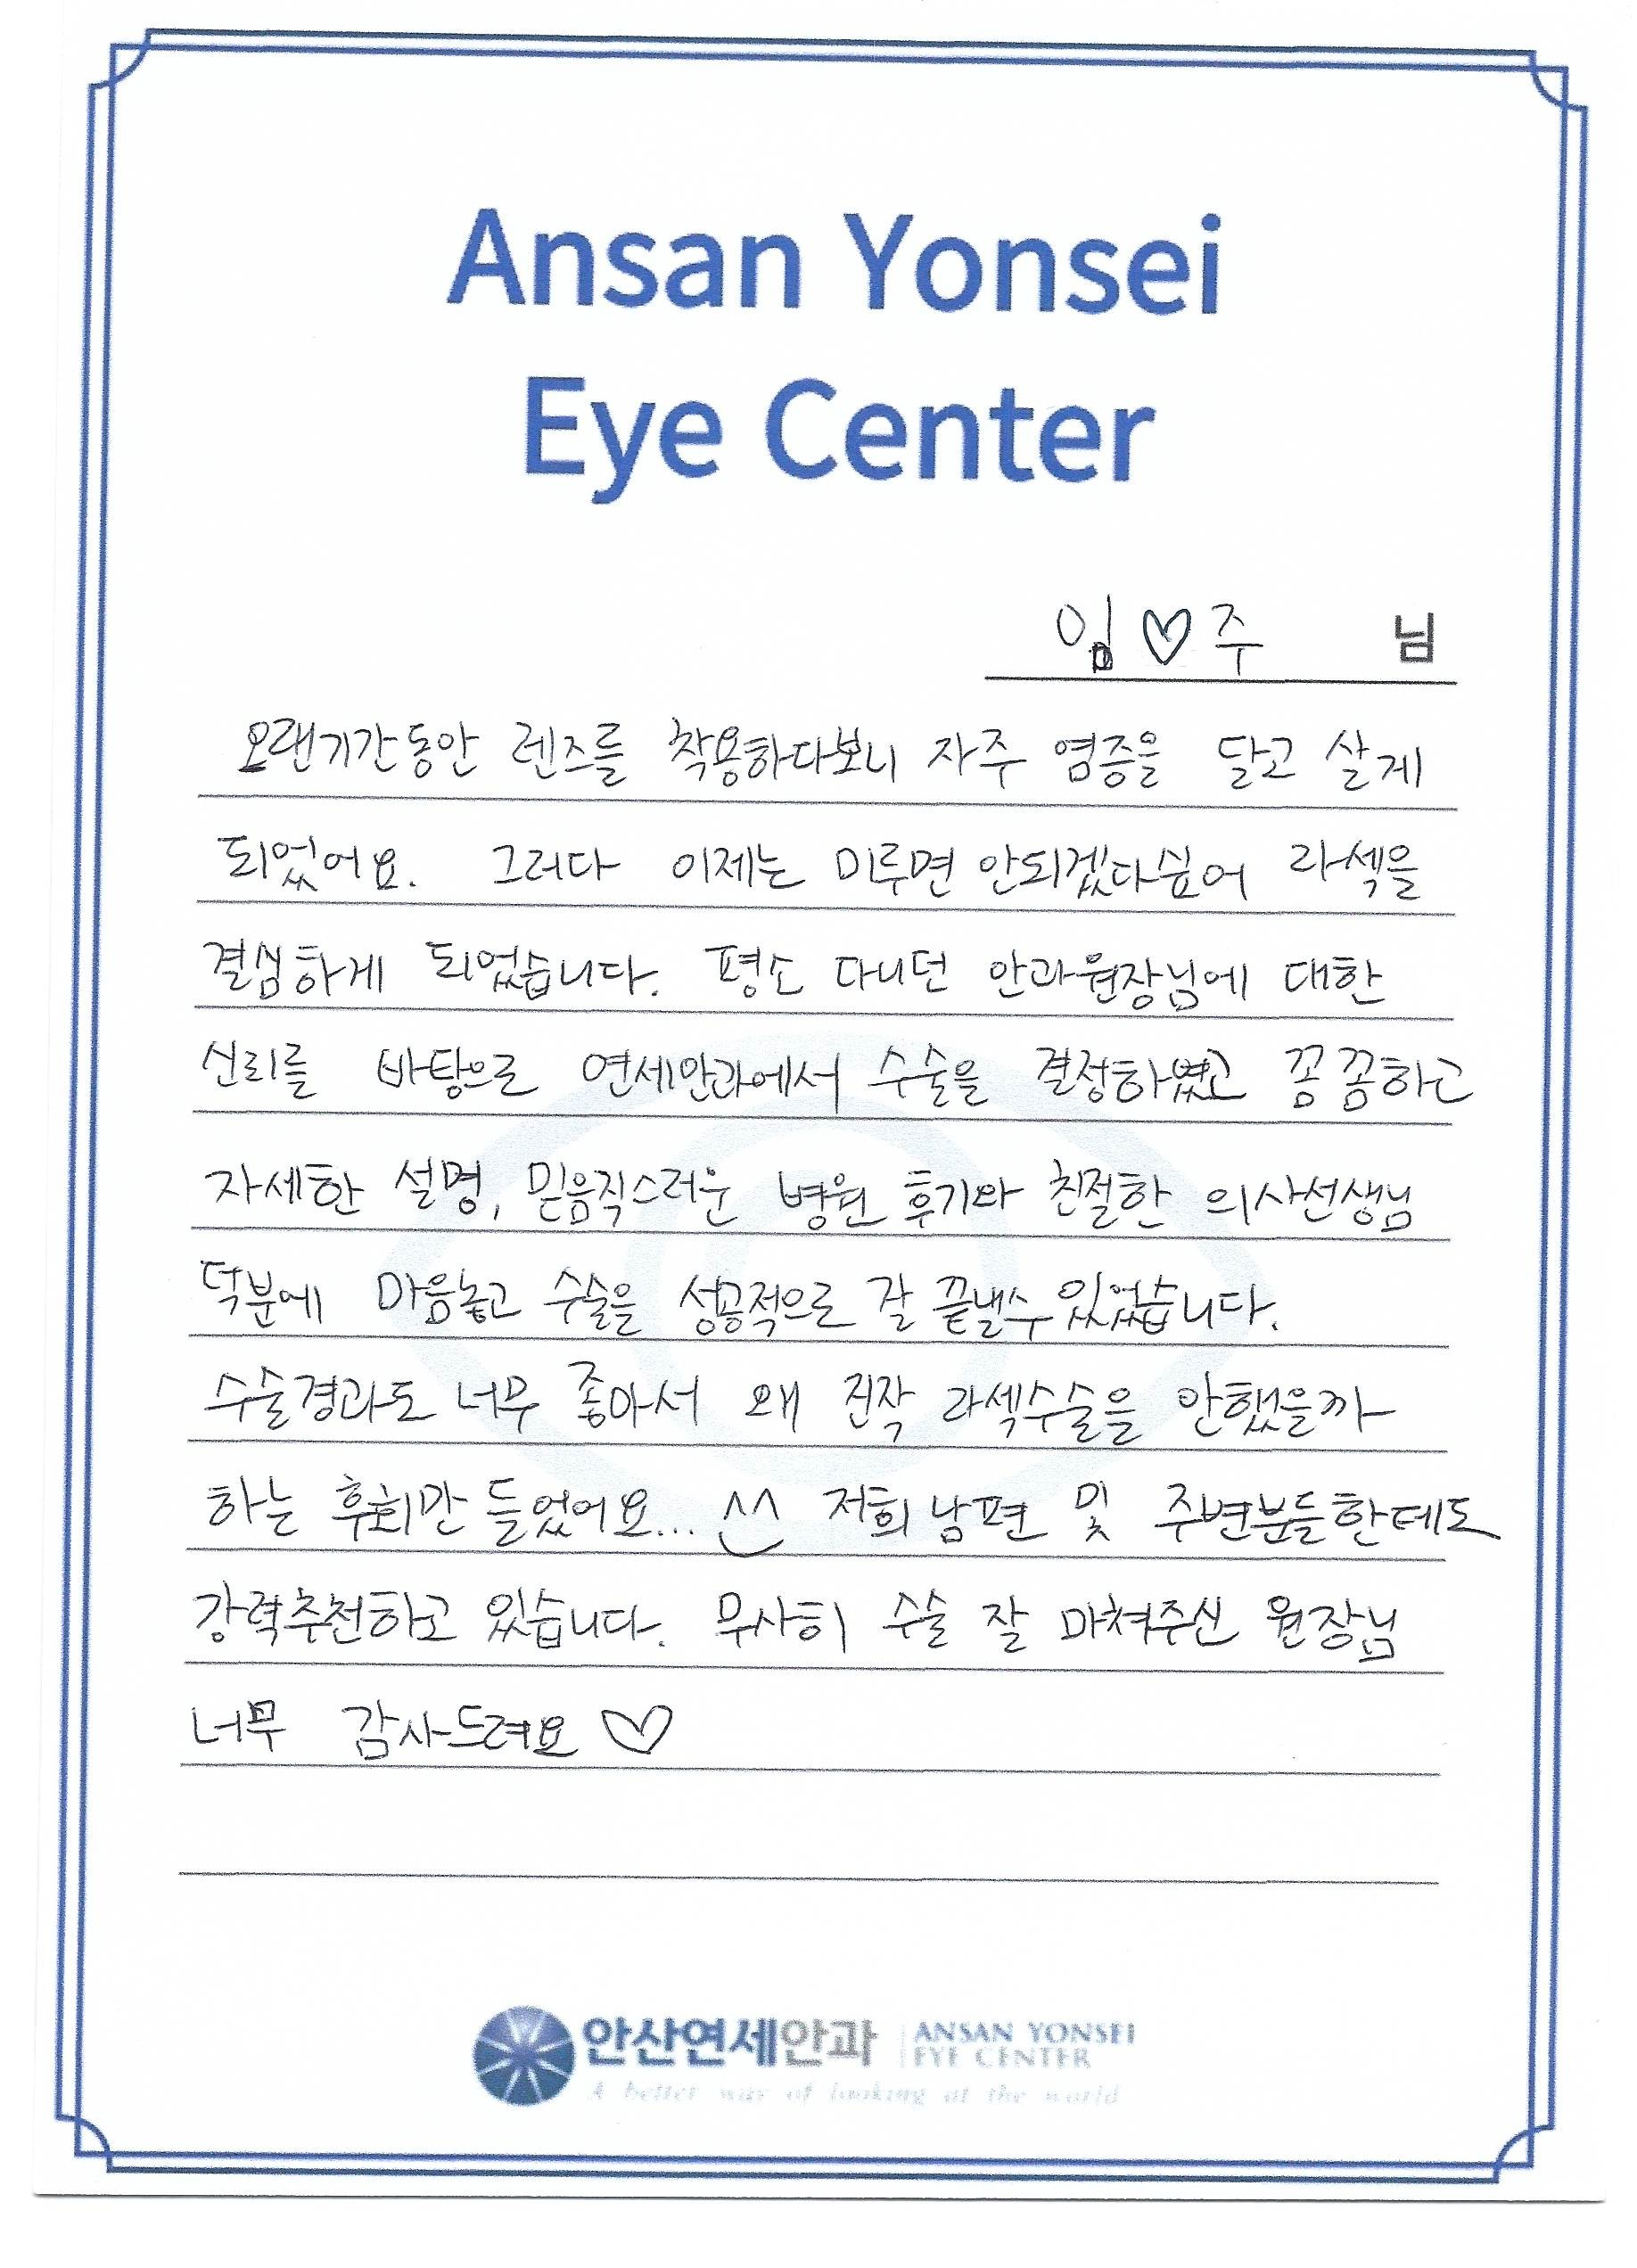 Ansan Yonsei
Eye Center
임♡주 님
오랜기간동안 렌즈를 착용하다보니 자주 염증을 달고 살게
되었어요. 그러다 이제는 미루면 안되겠다싶어 라섹을
결심하게 되었습니다. 평소 다니던 안과원장님에 대한
신뢰를 바탕으로 연세안과에서 수술을 결정하였고 꼼꼼하고
자세한 설명, 믿음직스러운 병원 후기와 친절한 의사선생님
덕분에 마음놓고 수술을 성공적으로 잘 끝낼수 있었습니다.
수술경과도 너무 좋아서 왜 진작 라섹수술을 안했을까
하는 후회만 들었어요... ^^ 저희 남편 및 주변분들한테도
강력추천하고 있습니다. 무사히 수술 잘 마쳐주신 원장님
너무 감사드려요 ♡
안산연세안과 ANSAN YONSEI
EYE CENTER
A better way of looking at the world